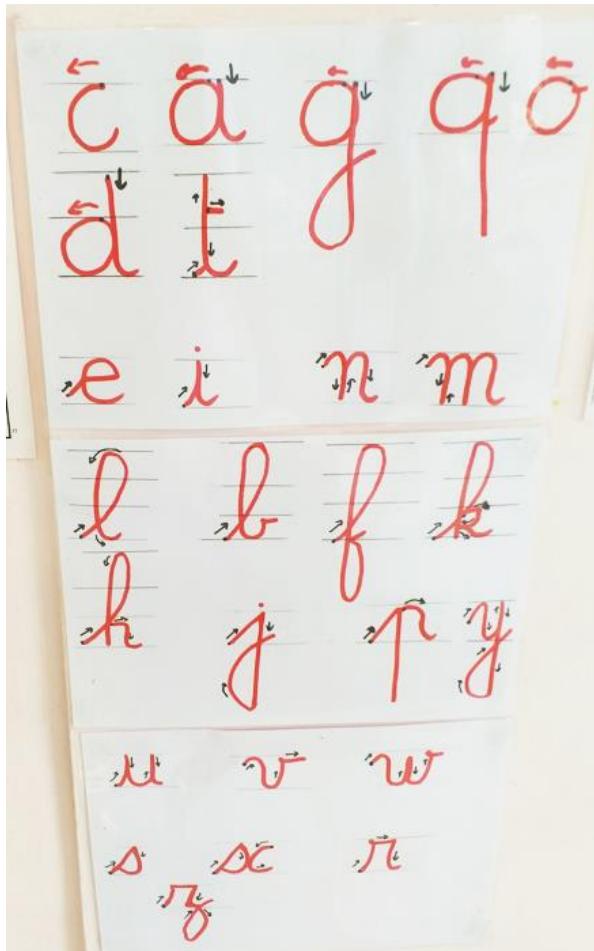 c a g q o
d t
e i n m
l b f k
h j p y
u v w
s x r
z